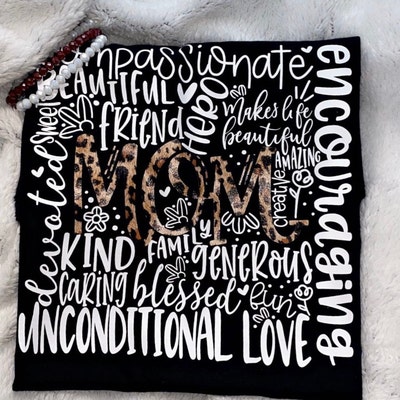 compassionate
BEAUTIFUL
sweet
FRIEND
HERO
makes life
beautiful
AMAZING
encouraging
devoted
MOM
creative
KIND
FAMILY
GENEROUS
CARING
blessed
fun
UNCONDITIONAL LOVE